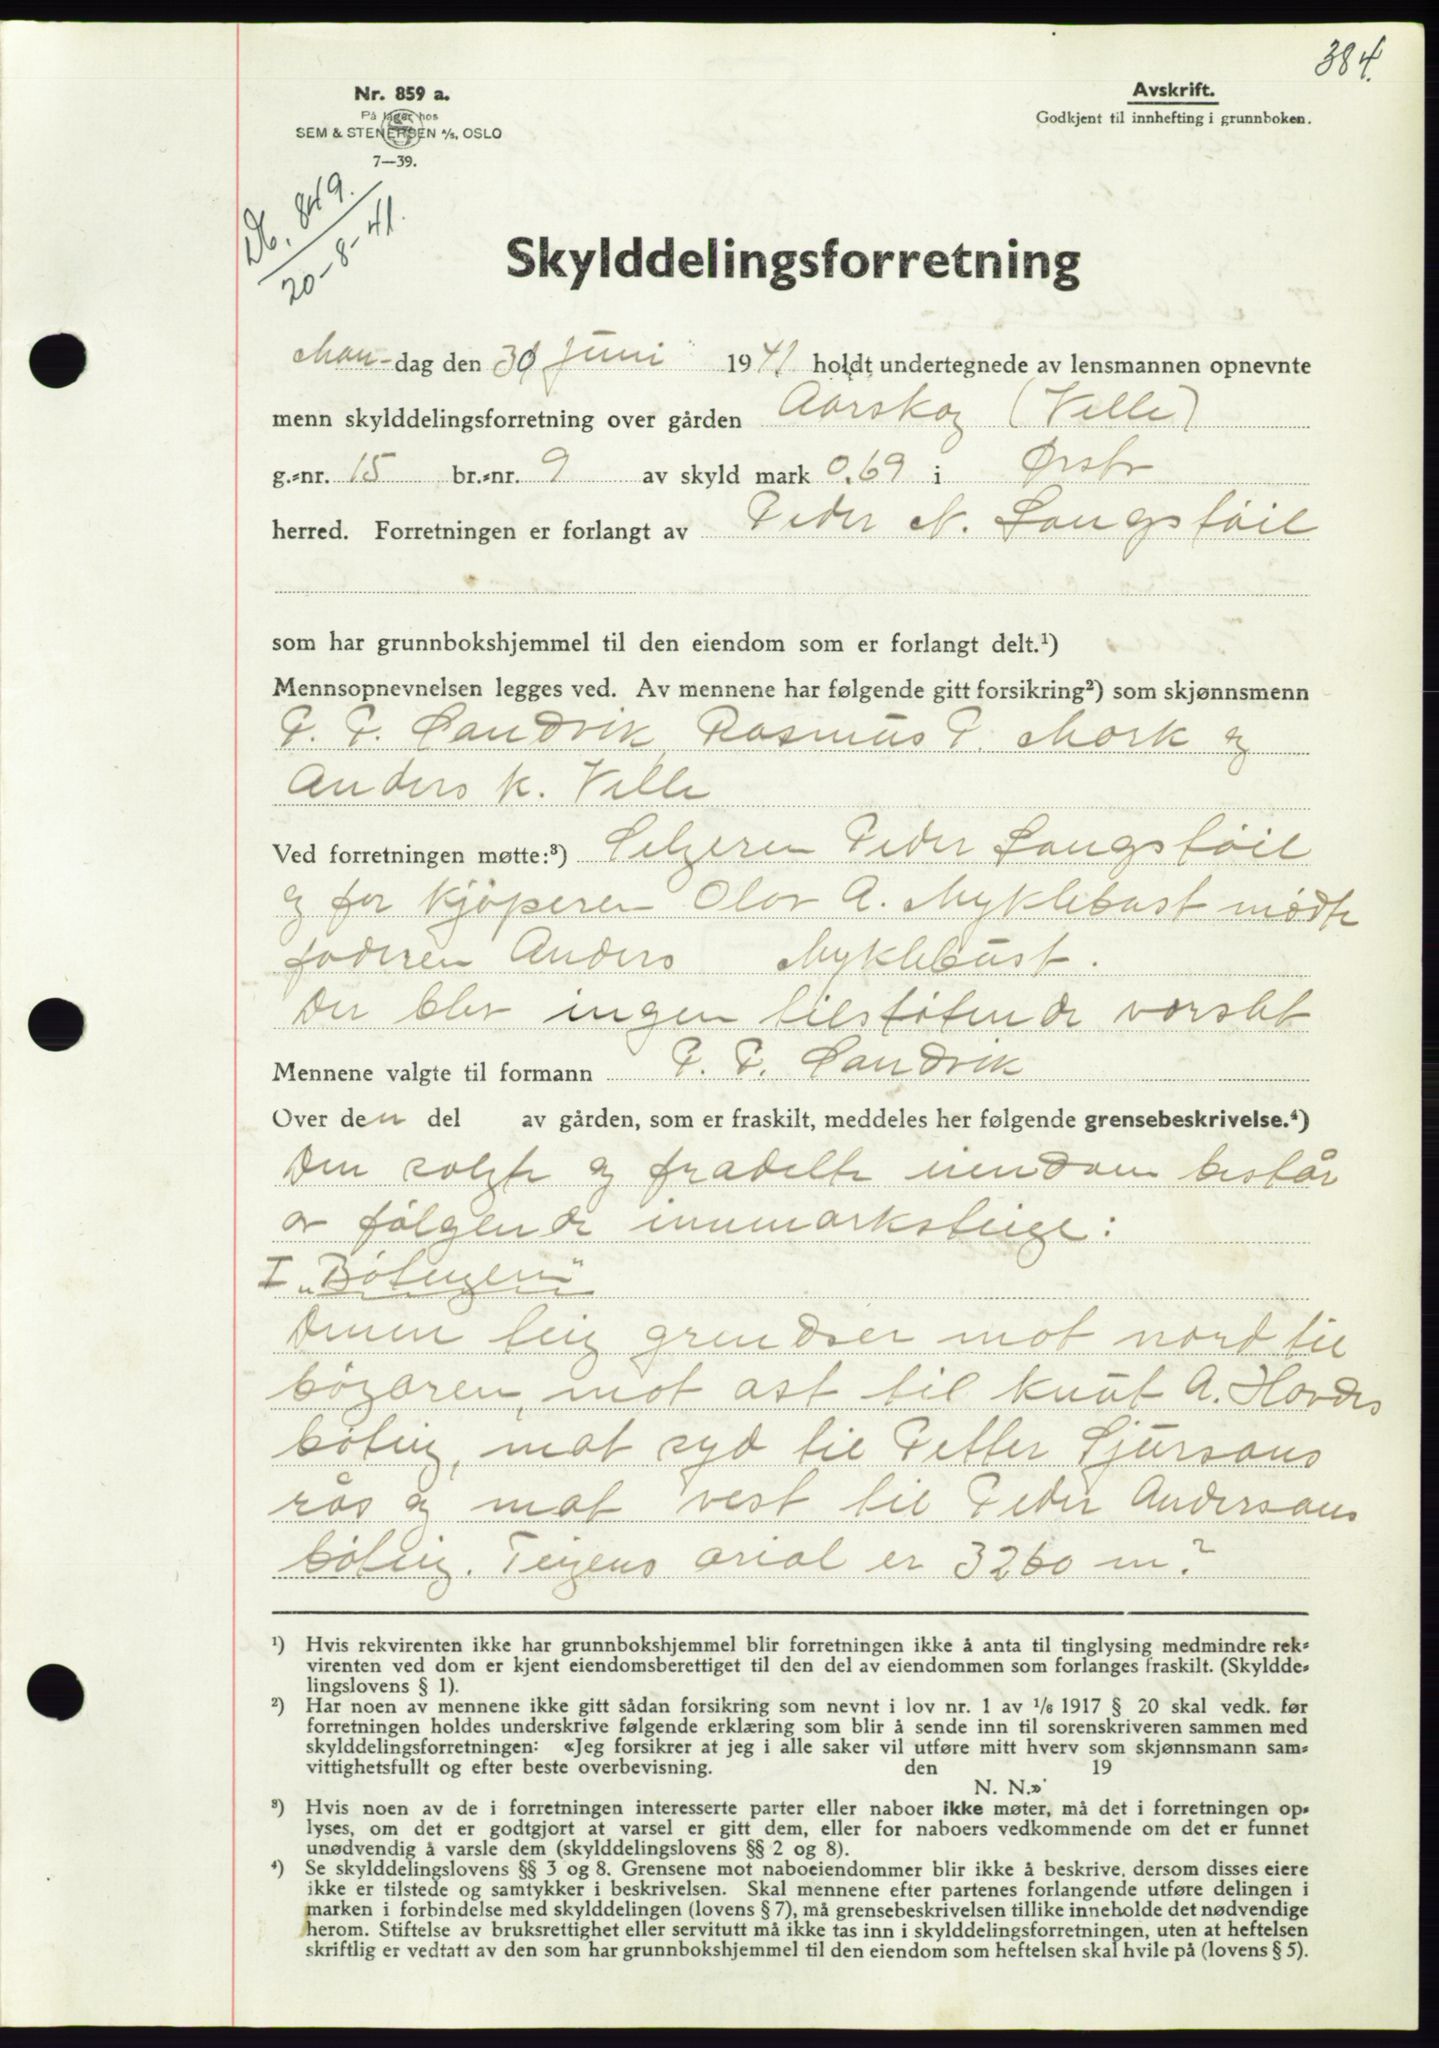 384.
Nr. 859 a.
På lager hos
SEM & STENERSEN A/S, OSLO
7—39.
Avskrift.
Godkjent til innhefting i grunnboken.
Db. 849.
20-8-41.
Skylddelingsforretning
Man-dag den 30 Juni 1941 holdt undertegnede av lensmannen opnevnte
menn skylddelingsforretning over gården Aarskog (Velle)
g.=nr. 15 br.=nr. 9 av skyld mark 0,69 i Ørsta
herred. Forretningen er forlangt av Peder N. Langstöil
som har grunnbokshjemmel til den eiendom som er forlangt delt.¹)
Mennsopnevnelsen legges ved. Av mennene har følgende gitt forsikring²) som skjønnsmenn
P. P. Sandvik, Rasmus P. Mork og
Anders K. Velle
Ved forretningen møtte:³) Selgeren Peder Langstöil
og for kjöperen Olav A. Myklebust mødte
faderen Anders Myklebust.
Der blev ingen tilstötende varslet
Mennene valgte til formann P. P. Sandvik
Over den del av gården, som er fraskilt, meddeles her følgende grensebeskrivelse.⁴)
Den solgte og fradelte eiendom består
av fölgende innmarksteige:
I „Böteigen"
Denne teig grendser mot nord til
bögaren, mot ast til Knut A. Hovdes
böteig, mot syd til Petter Sjursons
rås og mot vest til Peder Andersons
böteig. Teigens arial er 3260 m²
¹) Hvis rekvirenten ikke har grunnbokshjemmel blir forretningen ikke å anta til tinglysing medmindre rek=
virenten ved dom er kjent eiendomsberettiget til den del av eiendommen som forlanges fraskilt. (Skyldde=
lingslovens § 1).
²) Har noen av mennene ikke gitt sådan forsikring som nevnt i lov nr. 1 av 1/6 1917 § 20 skal vedk. før
forretningen holdes underskrive følgende erklæring som blir å sende inn til sorenskriveren sammen med
skylddelingsforretningen: «Jeg forsikrer at jeg i alle saker vil utføre mitt hverv som skjønnsmann sam=
vittighetsfullt og efter beste overbevisning. den 19
N. N.»
³) Hvis noen av de i forretningen interesserte parter eller naboer ikke møter, må det i forretningen op=
lyses, om det er godtgjort at varsel er gitt dem, eller for naboers vedkommende om det er funnet
unødvendig å varsle dem (skylddelingslovens §§ 2 og 8).
⁴) Se skylddelingslovens §§ 3 og 8. Grensene mot naboeiendommer blir ikke å beskrive, dersom disses eiere
ikke er tilstede og samtykker i beskrivelsen. Skal mennene efter partenes forlangende utføre delingen i
marken i forbindelse med skylddelingen (lovens § 7), må grensebeskrivelsen tillike inneholde det nødvendige
herom. Stiftelse av bruksrettighet eller servitutt må ikke tas inn i skylddelingsforretningen, uten at heftelsen
skriftlig er vedtatt av den som har grunnbokshjemmel til den eiendom som heftelsen skal hvile på (lovens § 5).